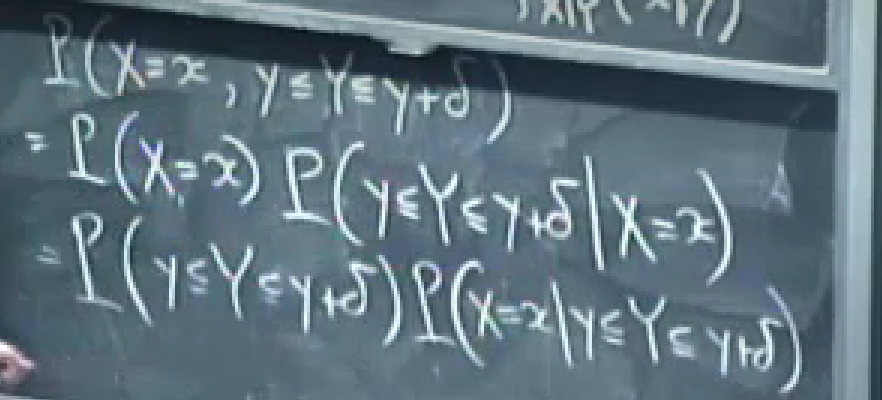 P(X=x, y≤Y≤y+δ)
= P(X=x) P(y≤Y≤y+δ|X=x)
= P(y≤Y≤y+δ) P(X=x|y≤Y≤y+δ)